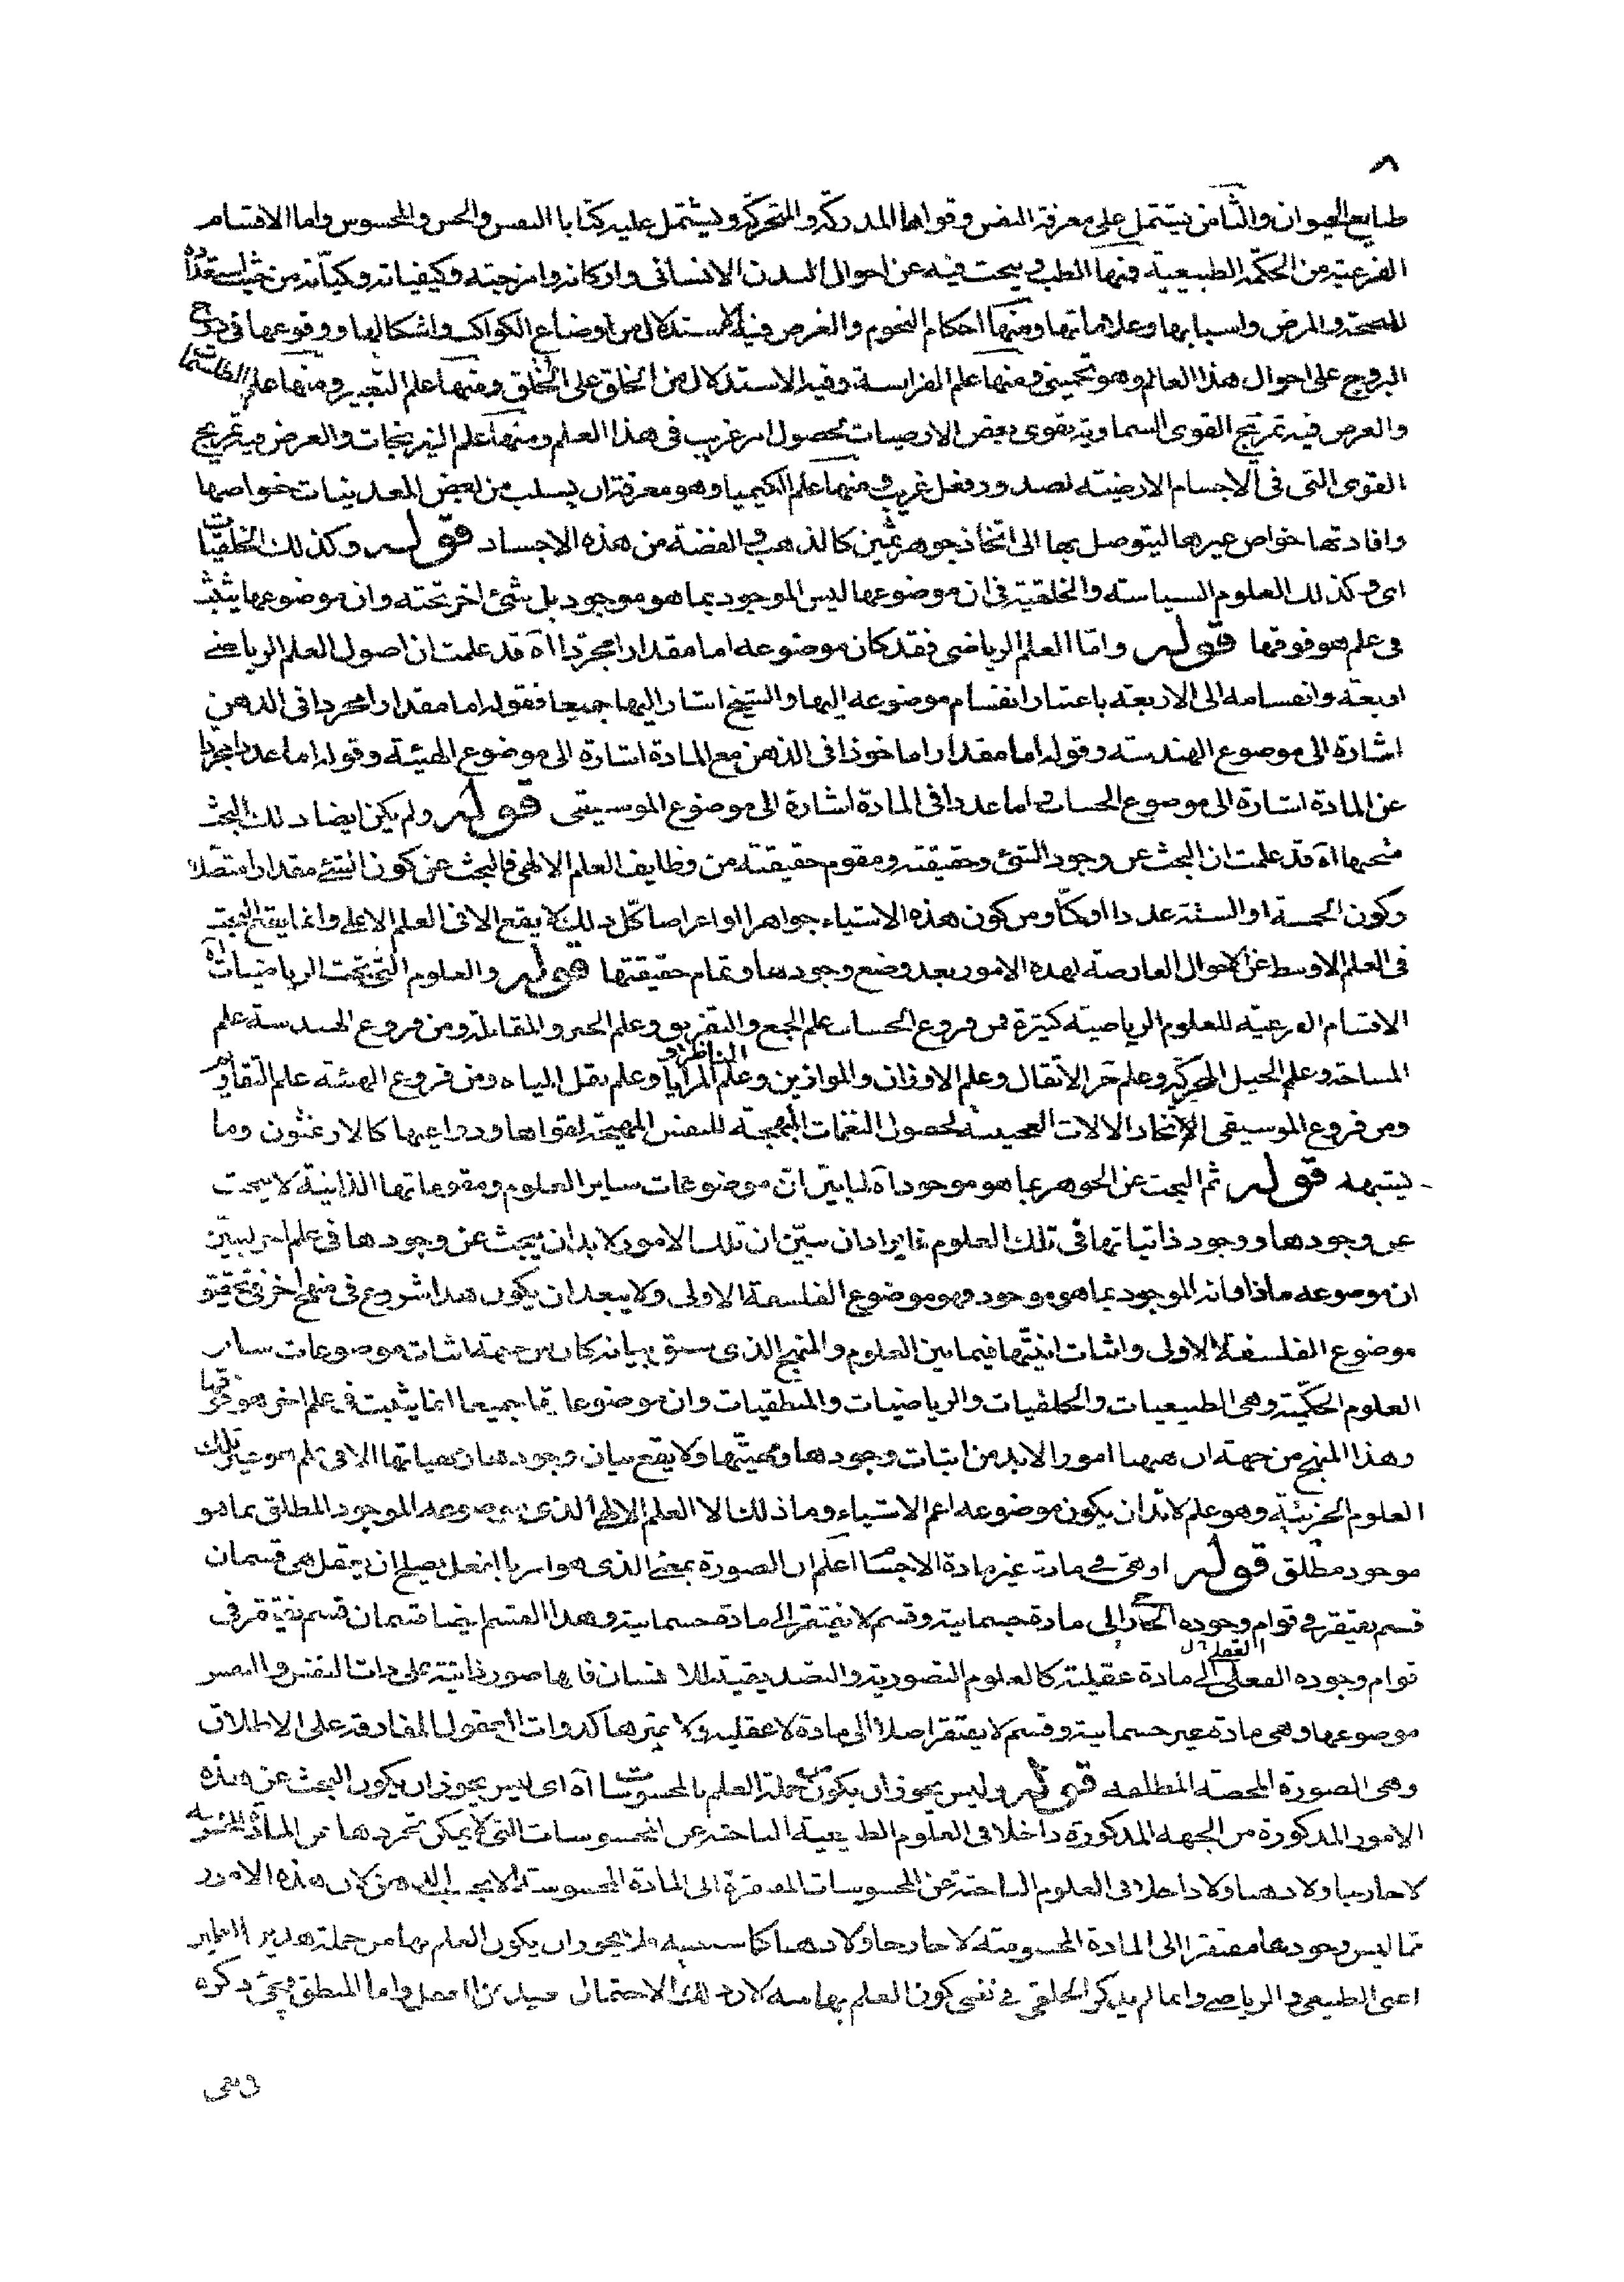 ٨
طبايع الحيوان والثامن يشتمل على معرفة النفس وقواها المدركة والمتحركة ويشتمل عليه كتابا النفس والحس والمحسوس واما الاقسام
الفرعية من الحكمة الطبيعية فمنها الطب ويبحث فيه عن احوال البدن الانسانى واركانه وامزجته وكيفياته وكمياته من حيث استعداده
للصحة والمرض واسبابها وعلاماتها ومنها احكام النجوم والغرض فيه الاستدلال من اوضاع الكواكب واشكالها ووقوعها فى درج
البروج على احوال هذا العالم وهو تخمينى ومنها علم الفراسة وفيه الاستدلال من الخلق على الخلق ومنها علم التعبير ومنها علم الطلسمات
والغرض فيه تمزيج القوى السماوية بقوى بعض الارضيات لحصول امر غريب فى هذا العلم ومنها علم النيرنجات والغرض فيه تمزيج
القوى التى فى الاجسام الارضية لصدور فعل غريب ومنها علم الكيميا وهو معرفة ان يسلب من بعض المعدنيات خواصها
وافادتها خواص غيرها ليتوصل بها الى اتخاذ جوهر ثمين كالذهب والفضة من هذه الاجساد قوله وكذلك الخلقيات
اى وكذلك العلوم السياسية والخلقية فى ان موضوعها ليس الموجود بما هو موجود بل شئ اخر تحته وان موضوعها يثبت
فى علم هو فوقها قوله واما العلم الرياضى فقد كان موضوعه اما مقدارا مجردا اه قد علمت ان اصول العلم الرياضى
اربعة وانقسامه الى الاربعة باعتبار انقسام موضوعه اليها والشيخ اشار اليها جميعا فقوله اما مقدارا مجردا فى الذهن
اشارة الى موضوع الهندسة وقوله اما مقدارا ماخوذا فى الذهن مع المادة اشارة الى موضوع الهيئة وقوله اما عددا مجردا
عن المادة اشارة الى موضوع الحساب اما عددا فى المادة اشارة الى موضوع الموسيقى قوله ولم يكن ايضا ذلك البحث
متجها اه قد علمت ان البحث عن وجود الشئ وحقيقته ومقوم حقيقته من وظايف العلم الالهى فالبحث عن كون الشئ مقدارا متصلا
وكون الخمسة او الستة عددا او كما ومن كون هذه الاشياء جواهر او اعراضا كل ذلك لا يقع الا فى العلم الاعلى وانما يقع البحث
فى العلم الاوسط عن الاحوال العارضة لهذه الامور بعد وضع وجودها وتمام حقيقتها قوله والعلوم التى تحت الرياضيات اه
الاقسام الفرعية للعلوم الرياضية كثيرة فمن فروع الحساب علم الجمع والتفريق وعلم الجبر والمقابلة ومن فروع الهندسة علم
المساحة وعلم الحيل المحركة وعلم جر الاثقال وعلم الاوزان والموازين وعلم المناظر و المرايا وعلم نقل المياه ومن فروع الهيئة علم التقاويم
ومن فروع الموسيقى الاتخاذ الالات العجيبة لحصول النغمات المبهجة للنفس المهيجة لقواها ودواعيها كالارغنون وما
يشبهه قوله ثم البحث عن الجوهر بما هو موجود اه لما بين ان موضوعات ساير العلوم ومقوماتها الذاتية لا يبحث
عن وجودها ووجود ذاتياتها فى تلك العلوم فايراد ان يبين ان تلك الامور لا بد ان يبحث عن وجودها فى علم اخر ليبين
ان موضوعه ماذا وانه الموجود بما هو موجود وهو موضوع الفلسفة الاولى ولا يبعد ان يكون هذا شروع فى منهج اخر فى تحقيق
موضوع الفلسفة الاولى واثبات انيتها فيما بين العلوم والمنهج الذى سبق بيانه كان من جهة اثبات موضوعات ساير
العلوم الحكمية وهى الطبيعيات والخلقيات والرياضيات والمنطقيات وان موضوعاتها جميعا انما يثبت فى علم اخر هو فوقها
وهذا المنهج من جهة ان ههنا امورا لابد من اثبات وجودها ومهيتها ولا يقع بيان وجودها ومهياتها الا فى علم هو غير تلك
العلوم الجزئية وهو علم لابد ان يكون موضوعه اعم الاشياء وما ذلك الا العلم الالهى الذى موضوعه الموجود المطلق بما هو
موجود مطلق قوله او هى فى مادة غير مادة الاجسام اعلم ان الصورة بمعنى الذى هو امر بالفعل يصلح ان يعقل هى قسمان
قسم يفتقر فى قوام وجوده الخارجى الى مادة جسمانية وقسم لا يفتقر الى مادة جسمانية وهذا القسم ايضا قسمان قسم يفتقر فى
قوام وجوده الفعلى الى مادة عقلية كالعلوم التصورية والتصديقية للانسان فانها صور ذاتية على ذات النفس والنفس
موضوعها وهى مادة غير جسمانية وقسم لا يفتقر اصلا الى مادة لا عقلية ولا غيرها كذوات العقول المفارقة على الاطلاق
وهى الصورة المحضة المطلقة قوله وليس يجوز ان يكون من جملة العلم بالمحسوسات اه اى ليس يجوز ان يكون البحث عن هذه
الامور المذكورة من الجهة المذكورة داخلا فى العلوم الطبيعية الباحثة عن المحسوسات التى لا يمكن تجردها عن المادة المحسوسة
لا خارجا ولا ذهنا ولا داخلا فى العلوم الباحثة عن المحسوسات المفتقرة الى المادة المحسوسة لا بحسب الذهن لان هذه الامور
مما ليس وجودها مفتقرا الى المادة المحسوسة لا خارجا ولا ذهنا كما سنبينه فلا يجوز ان يكون العلم بها من جملة هذين العلمين
اعنى الطبيعى والرياضى وانما لم يذكر الخلقى فى نفى كون العلم بها منه لان ذلك الاحتمال بعيد عن العقل واما المنطق فيجئ ذكره